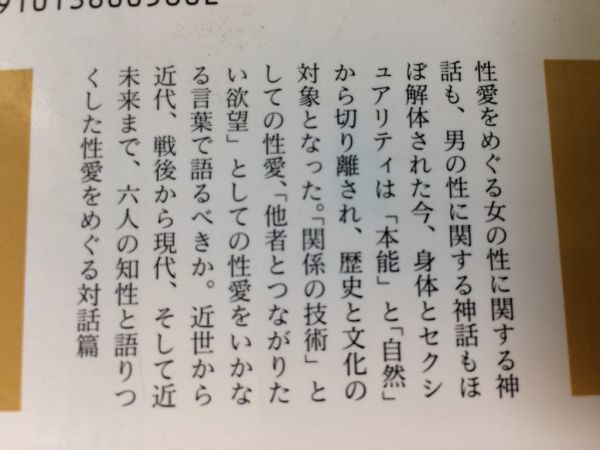 性愛をめぐる女の性に関する神
話も、男の性に関する神話もほ
ぼ解体された今、身体とセクシ
ュアリティは「本能」と「自然」
から切り離され、歴史と文化の
対象となった。「関係の技術」と
しての性愛、「他者とつながりた
い欲望」としての性愛をいかな
る言葉で語るべきか。近世から
近代、戦後から現代、そして近
未来まで、六人の知性と語りつ
くした性愛をめぐる対話篇